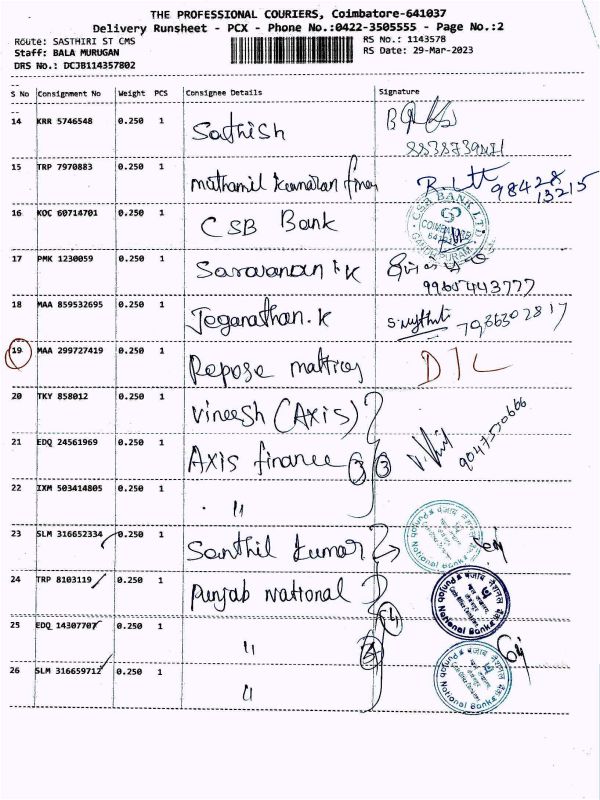 THE PROFESSIONAL COURIERS, Coimbatore-641037
Delivery Runsheet - PCX - Phone No.:0422-3505555 - Page No.:2
Route: SASTHIRI ST CMS
RS No.: 1143578
Staff: BALA MURUGAN
RS Date: 29-Mar-2023
DRS No.: DCJB114357802
S No Consignment No Weight PCS Consignee Details Signature
14 KRR 5746548 0.250 1 Sathish
15 TRP 7970883 0.250 1 mathamil kumaran 98428 13215
16 KOC 60714701 0.250 1 CSB Bank CSB BANK LTD
17 PMK 1230059 0.250 1 Saravanan K
18 MAA 859532695 0.250 1 Jeganathan.K
19 MAA 299727419 0.250 1 Repose mattres D/L
20 TKY 858012 0.250 1 vineesh (Axis)
21 EDQ 24561969 0.250 1 Axis finance 3 3 9047550666
22 IXM 503414805 0.250 1 "
23 SLM 316652334 0.250 1 Santhil kumar Punjab National Bank
24 TRP 8103119 0.250 1 punjab National Punjab National Bank
25 EDQ 14307707 0.250 1 "
26 SLM 316659712 0.250 1 " Punjab National Bank